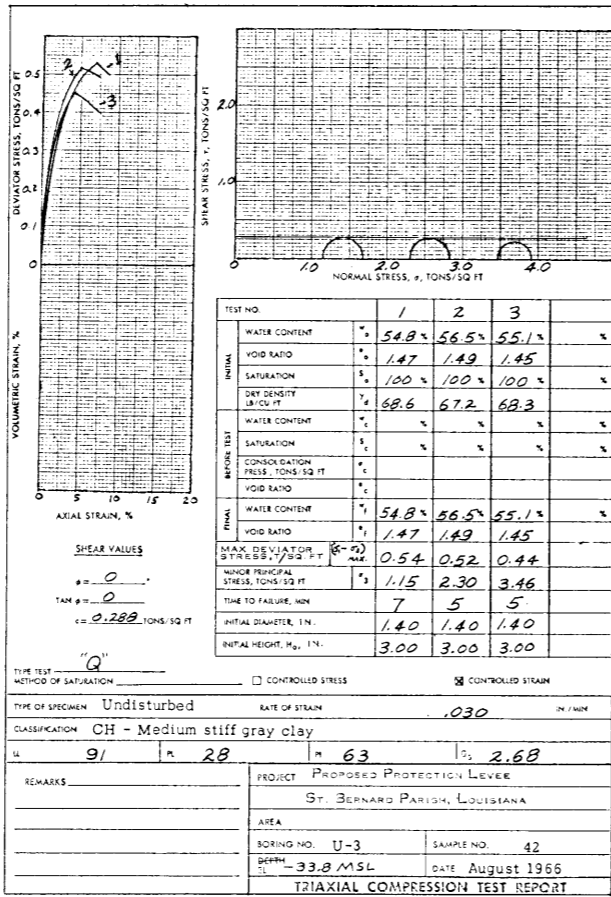 DEVIATOR STRESS, TONS/SQ FT
0.5
0.4
0.3
0.2
0.1
0
2
-1
-3
VOLUMETRIC STRAIN, %
0 5 10 15 20
AXIAL STRAIN, %
SHEAR STRESS, τ, TONS/SQ FT
2.0
1.0
0 1.0 2.0 3.0 4.0
NORMAL STRESS, σ, TONS/SQ FT
SHEAR VALUES
φ = 0 °
TAN φ = 0
c = 0.288 TONS/SQ FT
TEST NO. 1 2 3
INITIAL
WATER CONTENT w o 54.8 % 56.5 % 55.1 % %
VOID RATIO e o 1.47 1.49 1.45
SATURATION S o 100 % 100 % 100 % %
DRY DENSITY LB/CU FT γ d 68.6 67.2 68.3
BEFORE TEST
WATER CONTENT w c % % % %
SATURATION S c % % % %
CONSOLIDATION PRESS, TONS/SQ FT σ c
VOID RATIO e c
FINAL
WATER CONTENT w f 54.8 % 56.5 % 55.1 % %
VOID RATIO e f 1.47 1.49 1.45
MAX DEVIATOR STRESS, T/SQ. FT (σ1 - σ3) MAX. 0.54 0.52 0.44
MINOR PRINCIPAL STRESS, TONS/SQ FT σ 3 1.15 2.30 3.46
TIME TO FAILURE, MIN 7 5 5
INITIAL DIAMETER, IN. 1.40 1.40 1.40
INITIAL HEIGHT, Ho, IN. 3.00 3.00 3.00
TYPE TEST "Q"
METHOD OF SATURATION ☐ CONTROLLED STRESS ☒ CONTROLLED STRAIN
TYPE OF SPECIMEN Undisturbed RATE OF STRAIN .030 IN./MIN
CLASSIFICATION CH - Medium stiff gray clay
LL 91 PL 28 PI 63 Gs 2.68
REMARKS
PROJECT PROPOSED PROTECTION LEVEE
ST. BERNARD PARISH, LOUISIANA
AREA
BORING NO. U-3 SAMPLE NO. 42
DEPTH EL -33.8 MSL DATE August 1966
TRIAXIAL COMPRESSION TEST REPORT